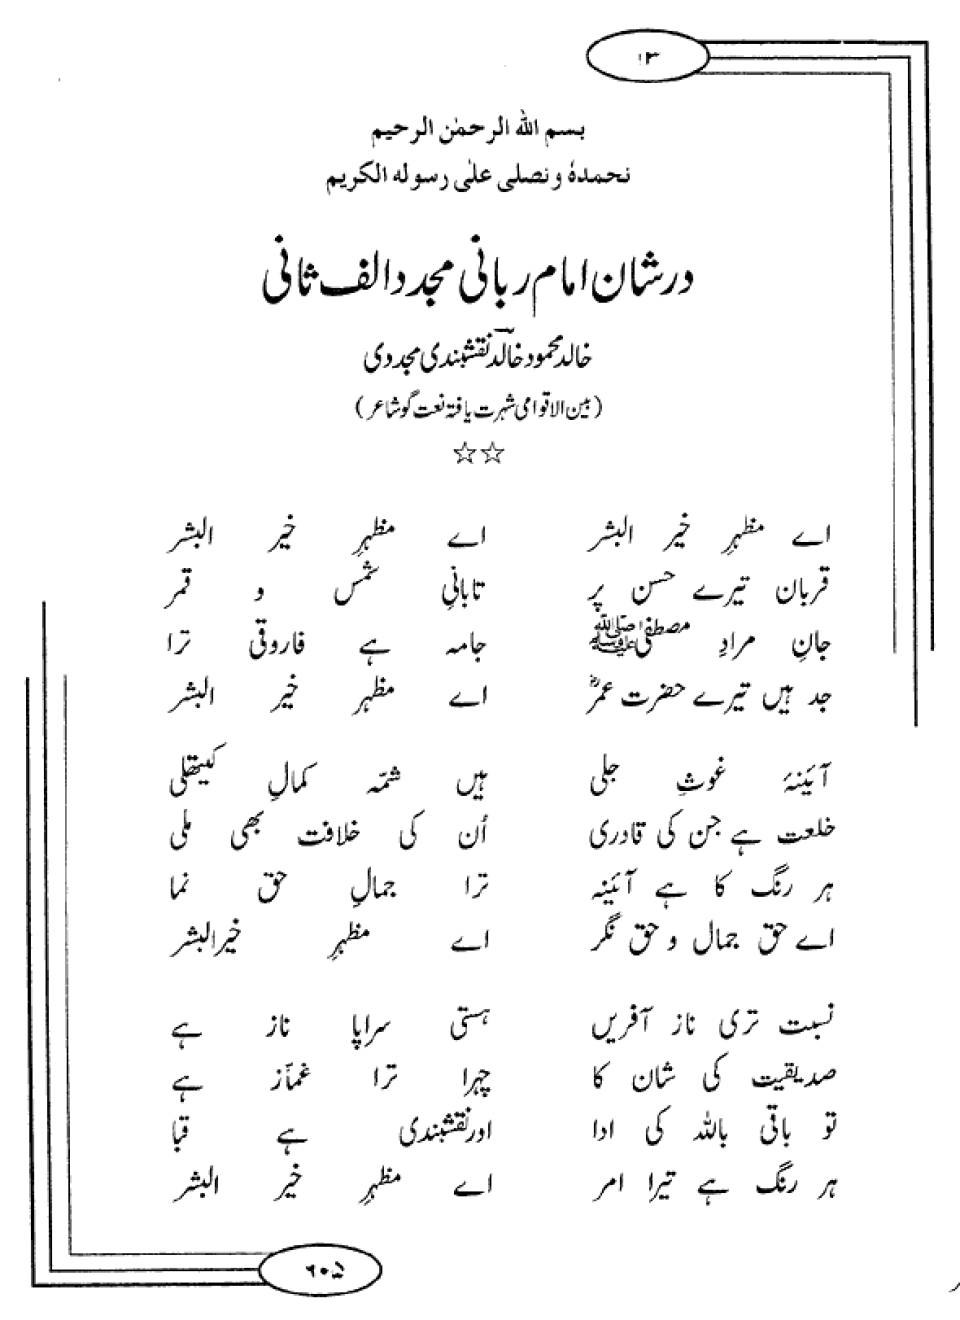 ۱۳
بسم الله الرحمٰن الرحيم
نحمدہٗ ونصلی علیٰ رسوله الکریم
در شان امام ربانی مجدد الف ثانی
خالد محمود خالدؔ نقشبندی مجددی
(بین الاقوامی شہرت یافتہ نعت گو شاعر)
☆☆
اے مظہرِ خیر البشر اے مظہرِ خیر البشر
قربان تیرے حسن پر تابانیِ شمس و قمر
جانِ مرادِ مصطفیٰ ﷺ جامہ ہے فاروقی ترا
جد ہیں تیرے حضرت عمرؓ اے مظہر خیر البشر
آئینۂ غوثِ جلی ہیں شمّہ کمالِ کیتھلی
خلعت ہے جن کی قادری اُن کی خلافت بھی ملی
ہر رنگ کا ہے آئینہ ترا جمالِ حق نما
اے حق جمال و حق نگر اے مظہرِ خیرالبشر
نسبت تری ناز آفریں ہستی سراپا ناز ہے
صدیقیت کی شان کا چہرا ترا غمّاز ہے
تو باقی باللہ کی ادا اور نقشبندی ہے قبا
ہر رنگ ہے تیرا امر اے مظہرِ خیر البشر
۶۰۵